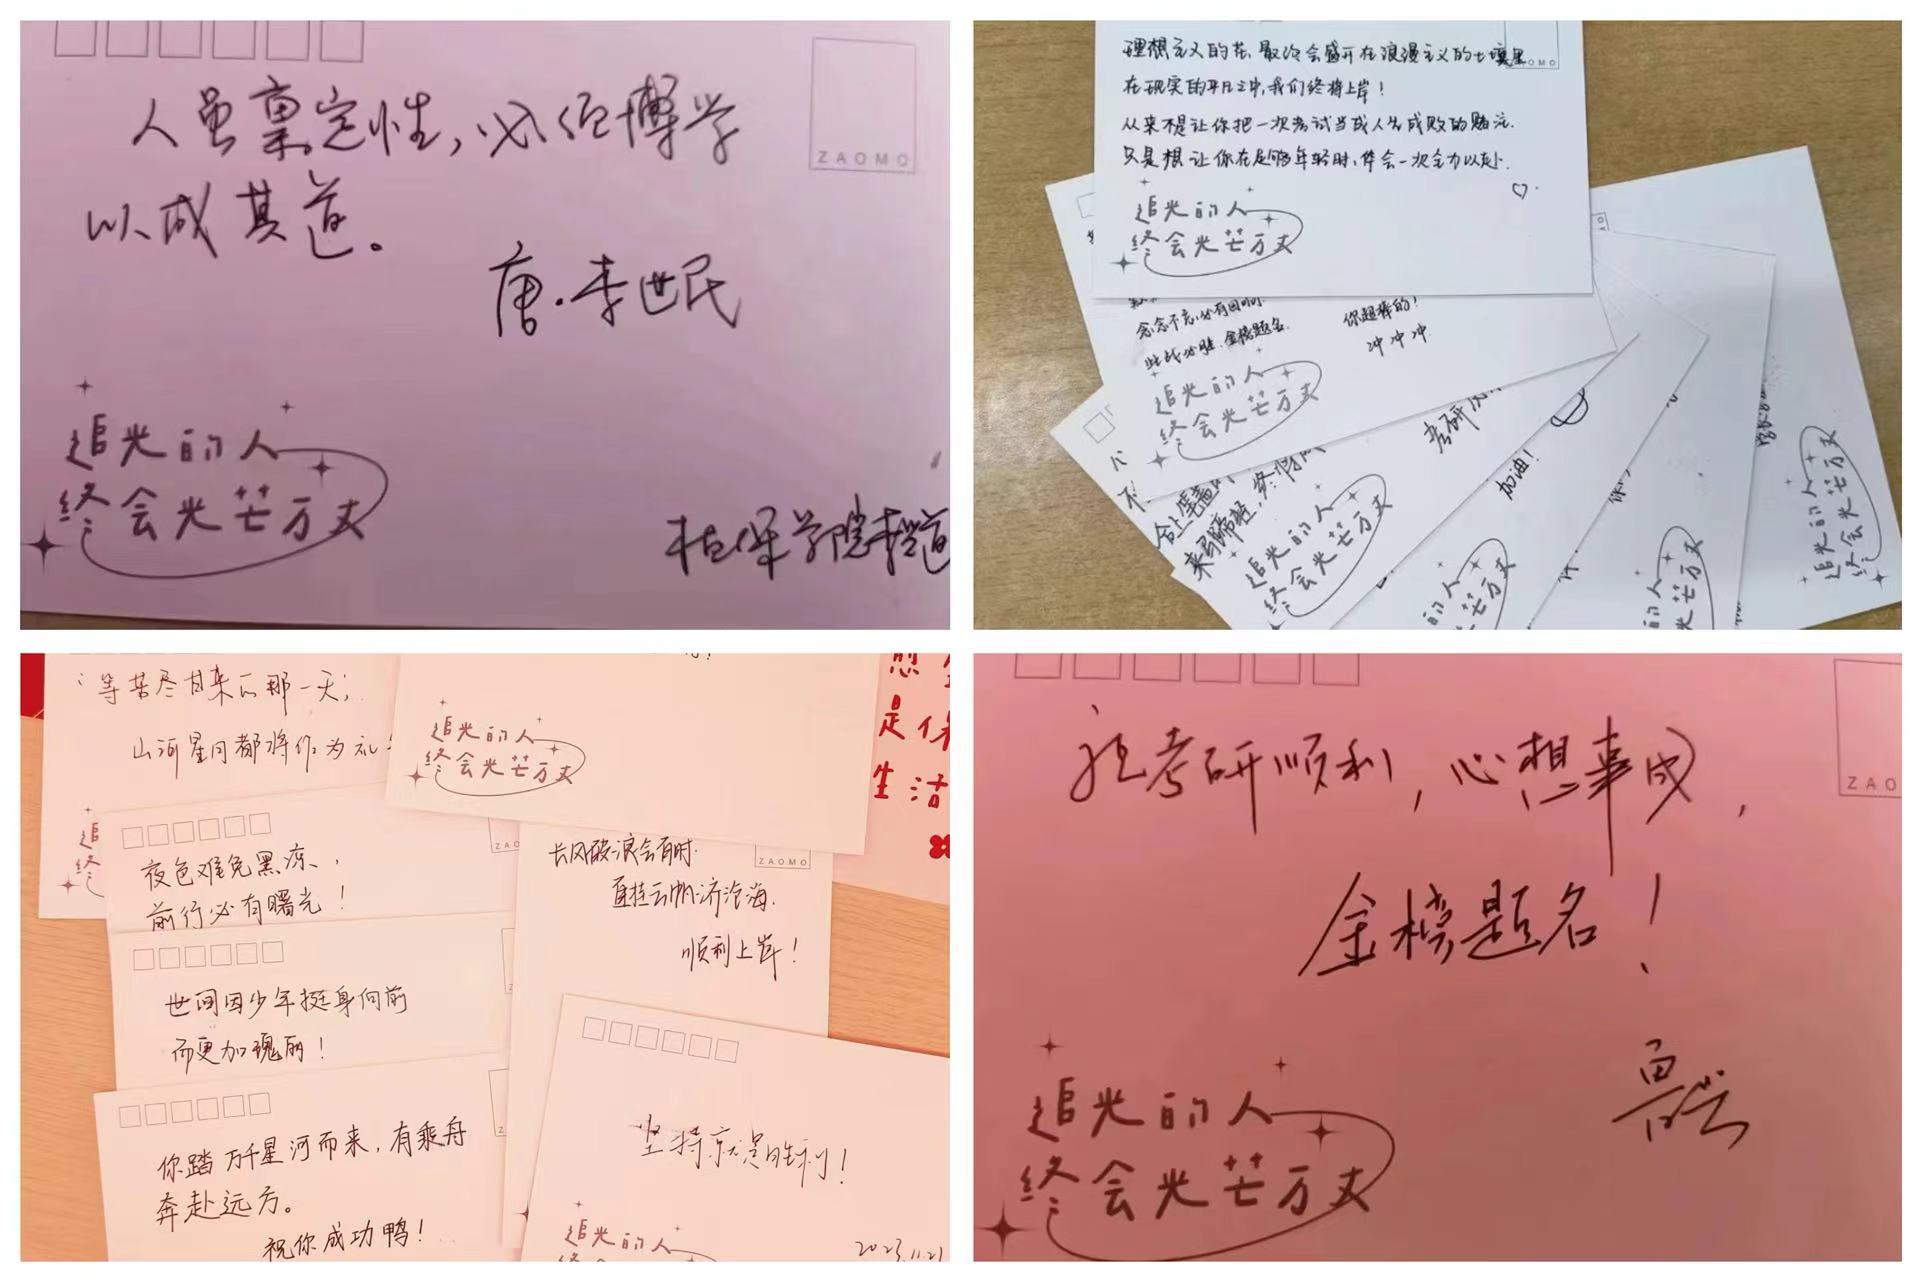 人虽禀定性，必须博学
以成其道。
唐·李世民
ZAOMO
追光的人
终会光芒万丈
理想主义的花，最终会盛开在浪漫主义的土壤里
ZAOMO
在现实的平凡之中，我们终将上岸！
从来不是让你把一次考试当成人生成败的赌注.
只是想让你在足够年轻时，体会一次全力以赴.
追光的人
终会光芒万丈
念念不忘，必有回响.
此战必胜，金榜题名.
你超棒的！
冲冲冲.
追光的人
终会光芒万丈
考研
加油！
追光的人
终会光芒万丈
的人
芒万丈
的人
芒万丈
追光的人
终会光芒万丈
等苦尽甘来的那一天，
山河星月都将作为礼
追
终
追光的人
终会光芒万丈
是保
生活
夜色难免黑凉，
前行必有曙光！
长风破浪会有时.
ZAOMO
直挂云帆济沧海.
顺利上岸！
世间因少年挺身向前
而更加瑰丽！
你踏万千星河而来，有乘舟
奔赴远方。
祝你成功鸭！
坚持就是胜利！
追光的人
2023.11.21
ZAO
祝考研顺利，心想事成，
金榜题名！
追光的人
终会光芒万丈